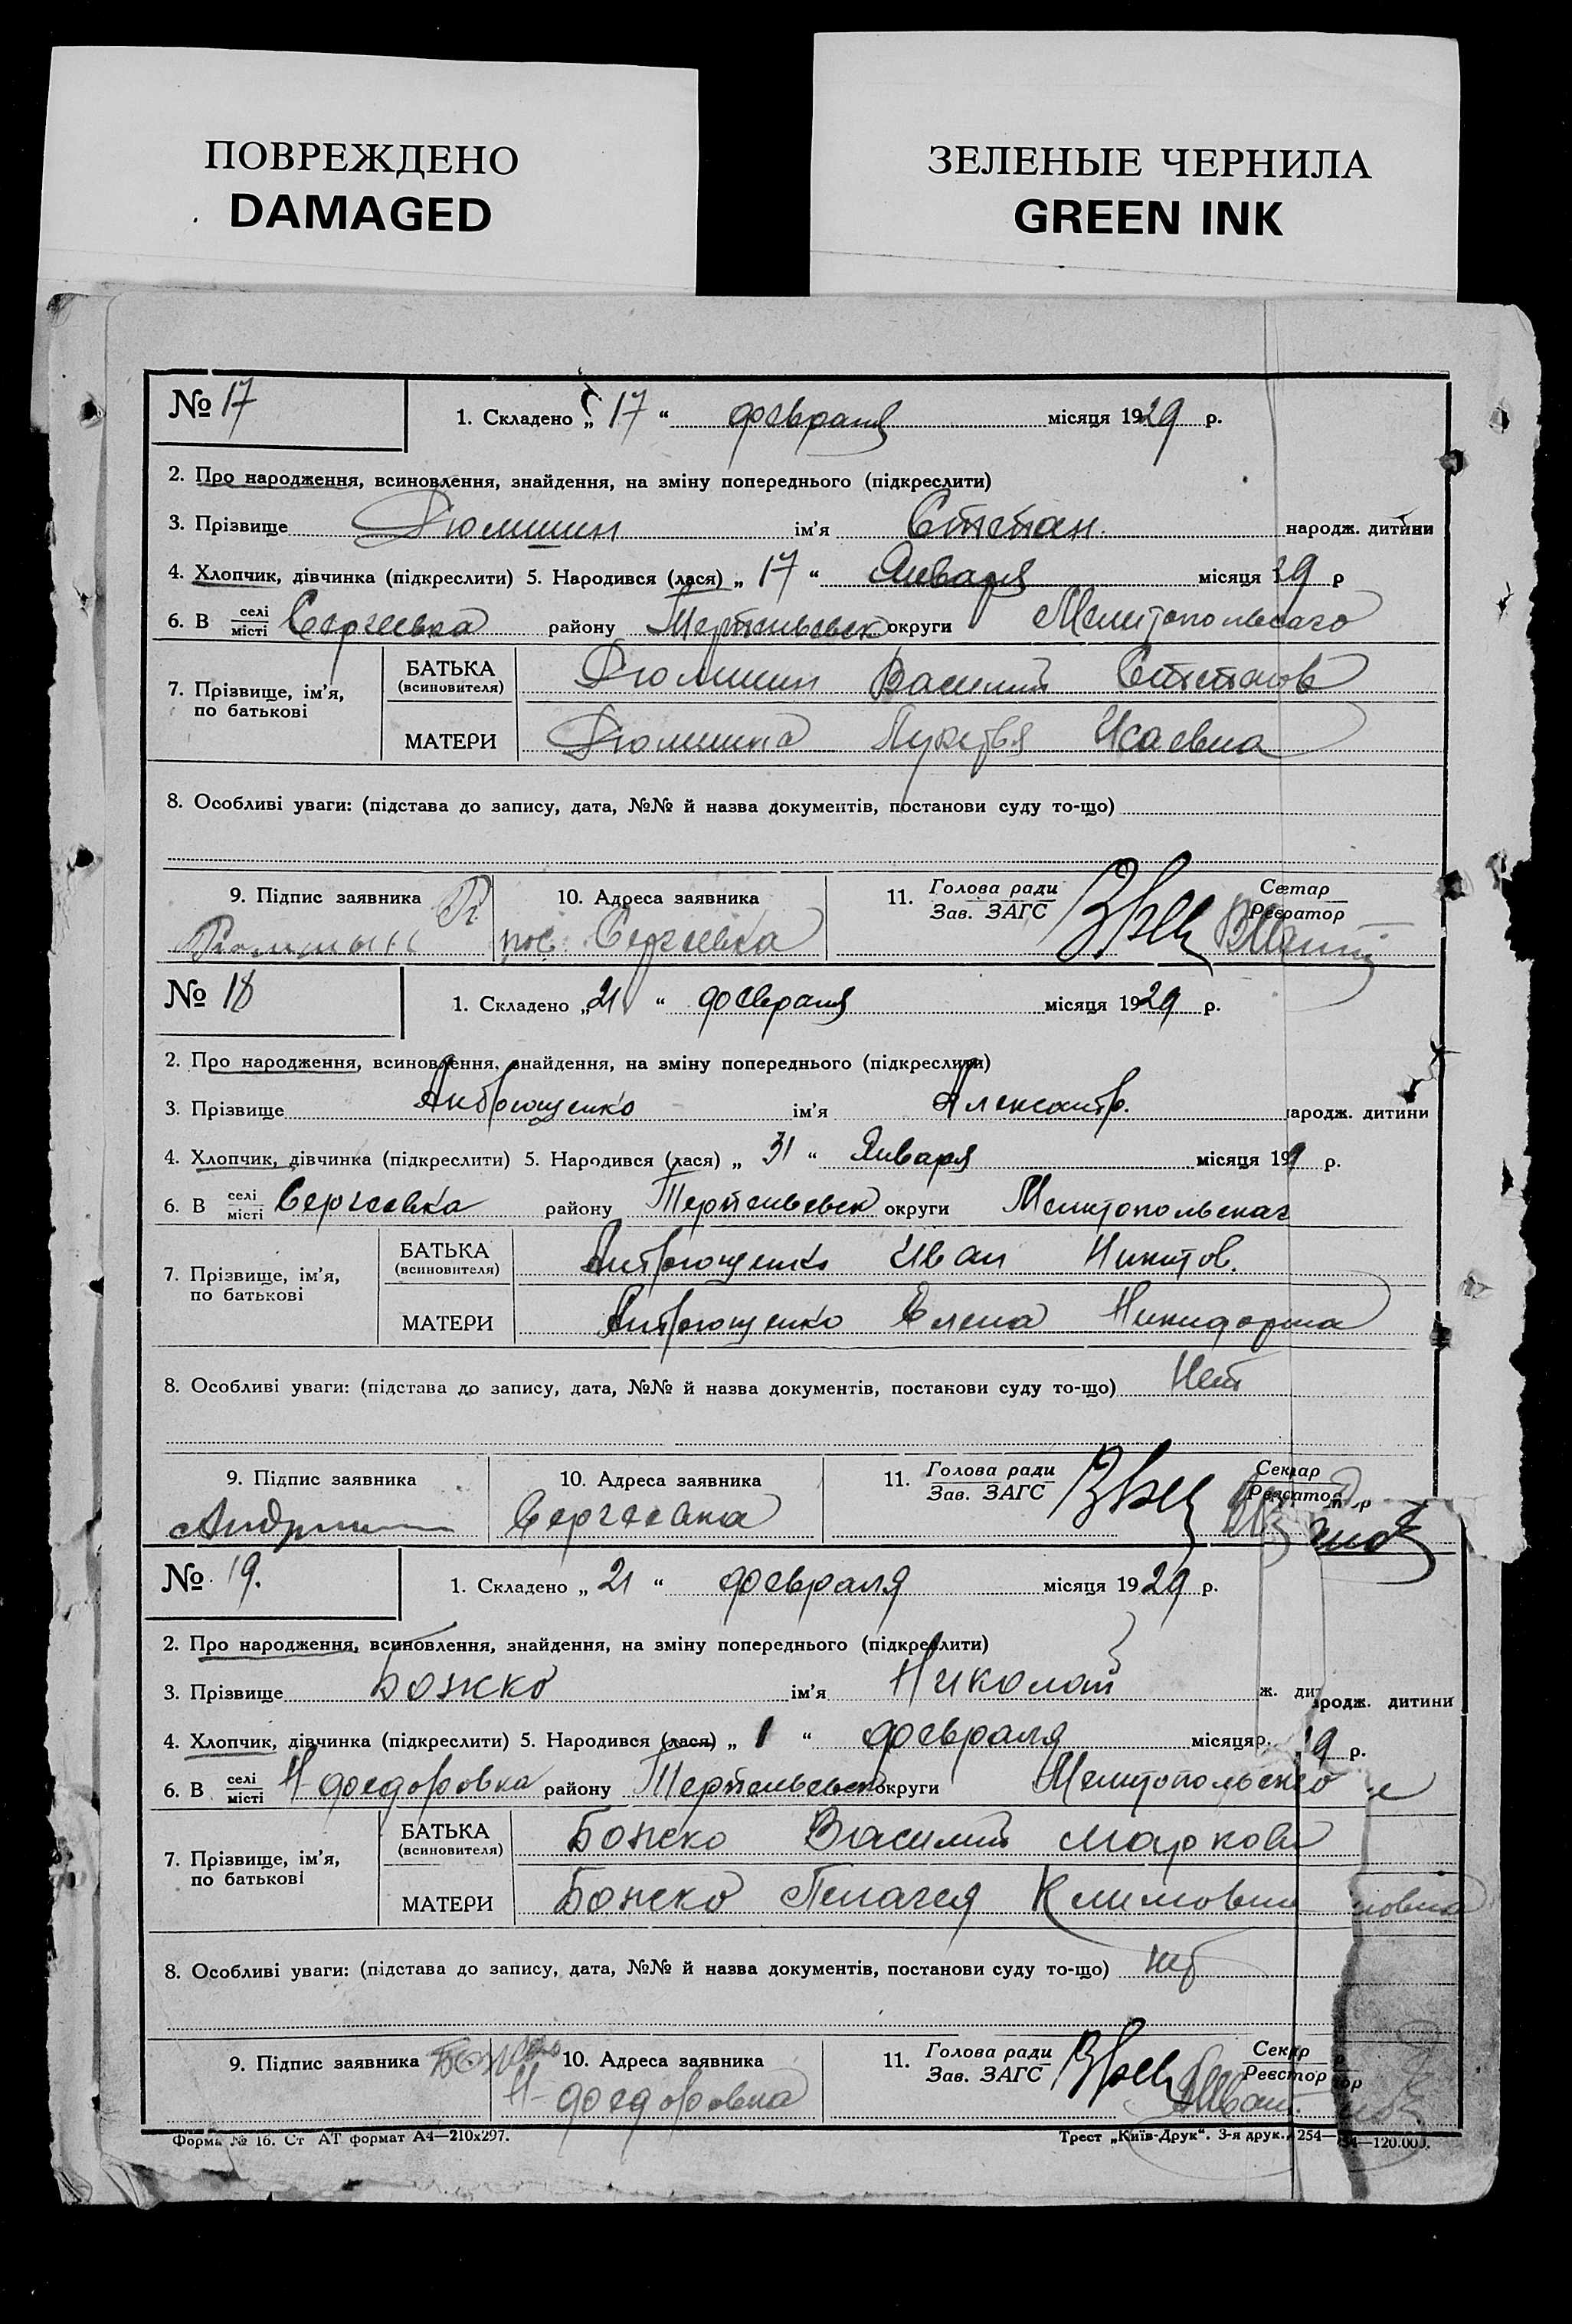 ПОВРЕЖДЕНО
DAMAGED
ЗЕЛЕНЫЕ ЧЕРНИЛА
GREEN INK
№ 17
1. Складено „ 17 “ февраля місяця 1929 р.
2. Про народження, всиновлення, знайдення, на зміну попереднього (підкреслити)
3. Прізвище Дюмин ім’я Степан. народж. дитини
4. Хлопчик, дівчинка (підкреслити) 5. Народився (лася) „ 17 “ Января місяця 29 р
6. В селі/місті Сергеевка району округи Мелитопольсаго
7. Прізвище, ім’я, по батькові
БАТЬКА (всиновителя) Василий Степанов
МАТЕРИ Исаевна
8. Особливі уваги: (підстава до запису, дата, №№ й назва документів, постанови суду то-що)
9. Підпис заявника
10. Адреса заявника
пос. Сергеевка
11. Голова ради / Зав. ЗАГС
№ 18
1. Складено „ 21 “ февраля місяця 1929 р.
2. Про народження, всиновлення, знайдення, на зміну попереднього (підкреслити)
3. Прізвище ім’я Александр. народж. дитини
4. Хлопчик, дівчинка (підкреслити) 5. Народився (лася) „ 31 “ Января місяця 199 р.
6. В селі/місті Сергеевка району округи
7. Прізвище, ім’я, по батькові
БАТЬКА (всиновителя) Иван Никитов.
МАТЕРИ Елена
8. Особливі уваги: (підстава до запису, дата, №№ й назва документів, постанови суду то-що) Нет
9. Підпис заявника
10. Адреса заявника
Сергеевка
11. Голова ради / Зав. ЗАГС
№ 19.
1. Складено „ 21 “ февраля місяця 1929 р.
2. Про народження, всиновлення, знайдення, на зміну попереднього (підкреслити)
3. Прізвище Божко ім’я Николай ж. дит родж. дитини
4. Хлопчик, дівчинка (підкреслити) 5. Народився (лася) „ 1 “ февраля місяця р. 19 р.
6. В селі/місті Н-Федоровка району округи
7. Прізвище, ім’я, по батькові
БАТЬКА (всиновителя) Божко Василий Маркови
МАТЕРИ Божко Пелагея Климовн новна
8. Особливі уваги: (підстава до запису, дата, №№ й назва документів, постанови суду то-що) нет
9. Підпис заявника Божко
10. Адреса заявника
Н-Федоровка
11. Голова ради / Зав. ЗАГС
Форма № 16. Ст АТ формат А4—210x297.
Трест „Київ-Друк“. 3-я друк. 254— 54—120.000.